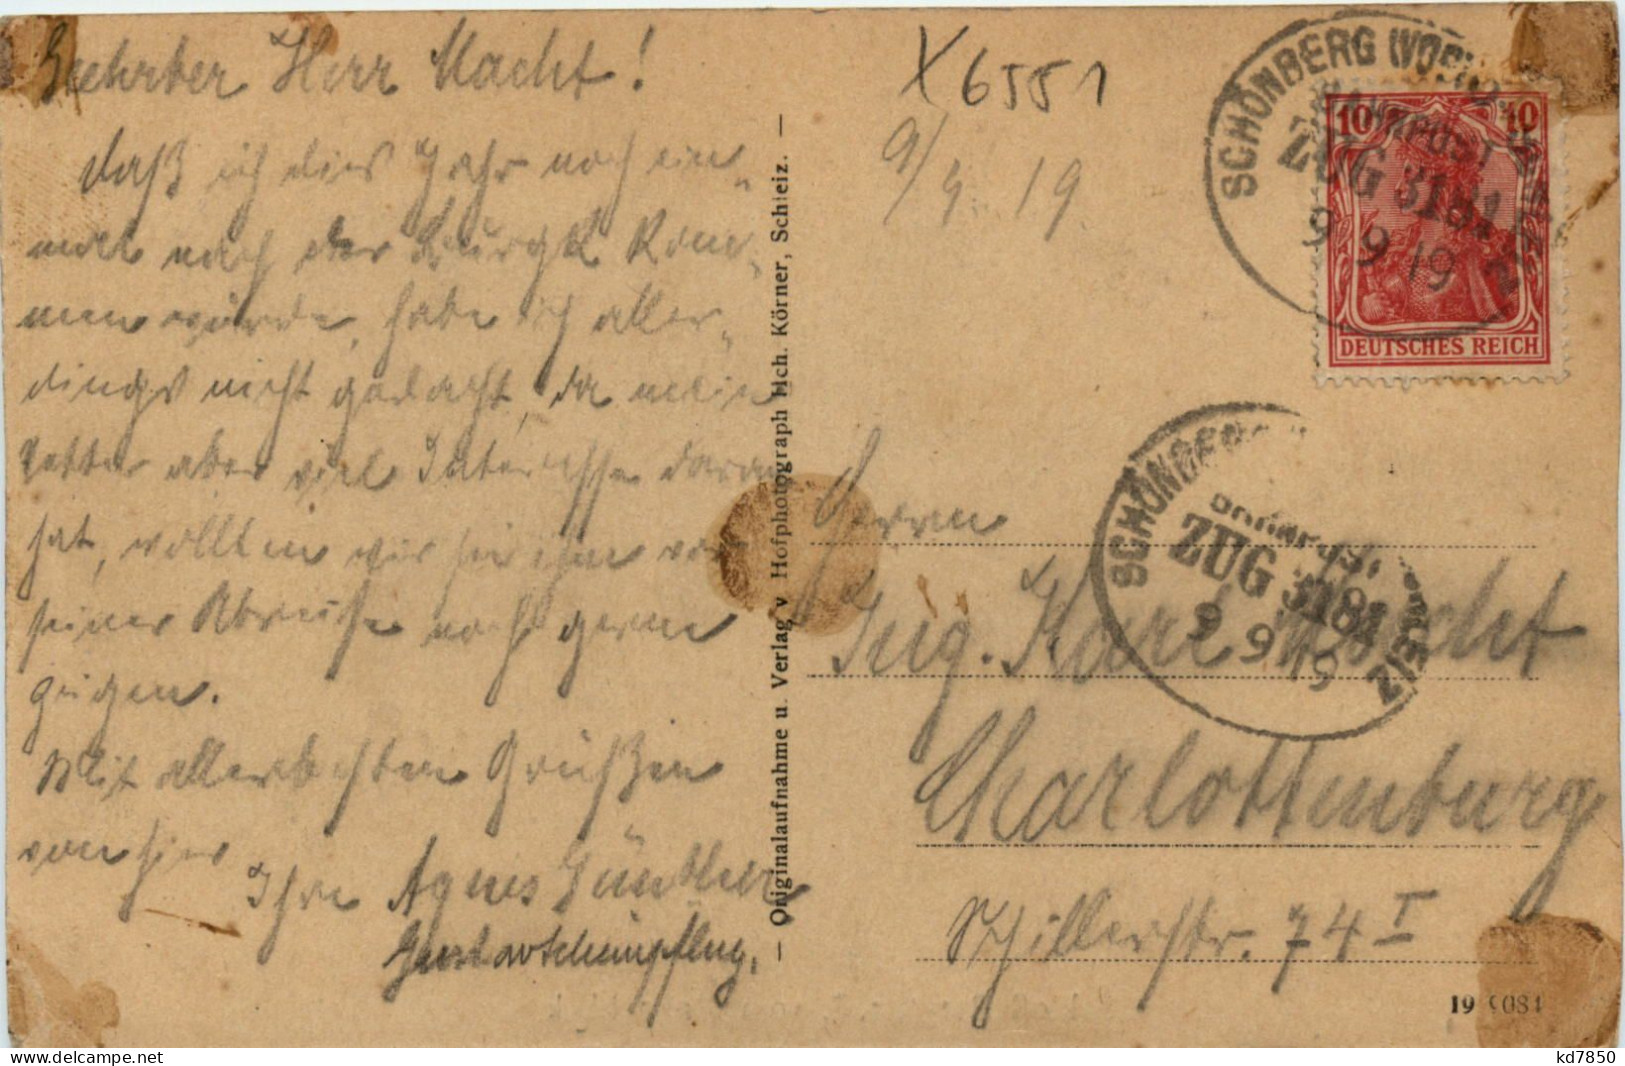 Geehrter Herr Macht!
daß ich dies Jahr noch ein-
mal nach der Burgk kom-
men würde, habe ich aller-
dings nicht gedacht, da mein
Vetter aber viel Interesse daran
hat, wollten wir sie ihm vor
seiner Abreise noch gerne
zeigen.
Mit allerbesten Grüßen
von hier
Ihre Agnes Günther
Gustav Schimpflug.
— Originalaufnahme u. Verlag v Hofphotograph Hch. Körner, Schleiz. —
X6551
9/9. 19.
SCHÖNBERG (VOGTL.)
BAHNPOST
ZUG 3181
9 9 19
10 10
DEUTSCHES REICH
SCHÖNBERG
BAHNPOST
ZUG 3181
9 9 19
SCHLEIZ
Herrn
Ing. Karl Macht
Charlottenburg
Schillerstr. 74 I
19 9084
kd7850
delcampe.net